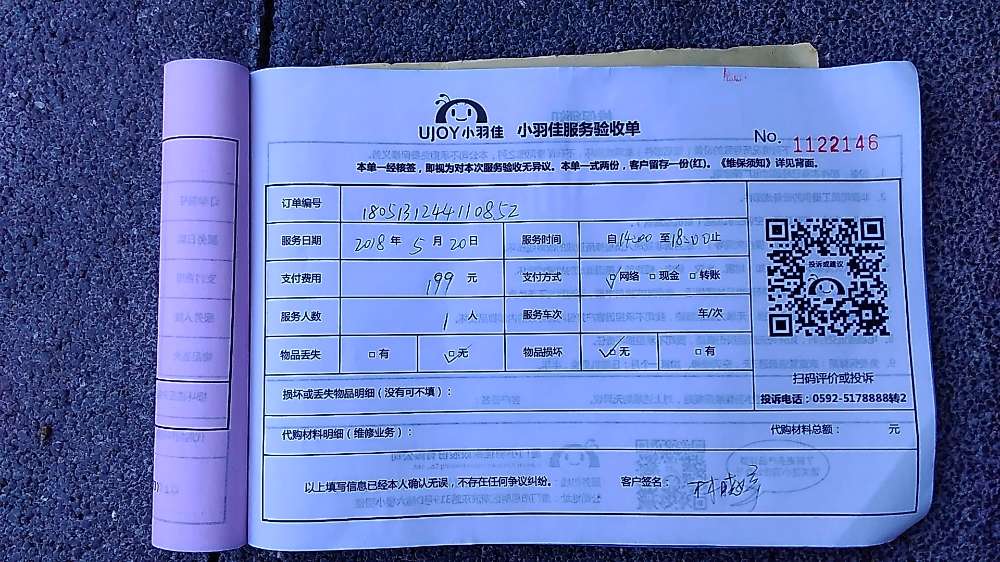 UJOY小羽佳 小羽佳服务验收单
No. 1122146
本单一经核签，即视为对本次服务验收无异议。本单一式两份，客户留存一份(红)。《维保须知》详见背面。
订单编号 1805131244110852
服务日期 2018年5月20日 服务时间 自14:00至18:00止
支付费用 199元 支付方式 ☑网络 □现金 □转账
服务人数 1人 服务车次 车/次
物品丢失 □有 ☑无 物品损坏 ☑无 □有
投诉或建议
扫码评价或投诉
损坏或丢失物品明细（没有可不填）：
投诉电话：0592-5178888转2
代购材料明细（维修业务）： 代购材料总额： 元
以上填写信息已经本人确认无误，不存在任何争议纠纷。 客户签名：